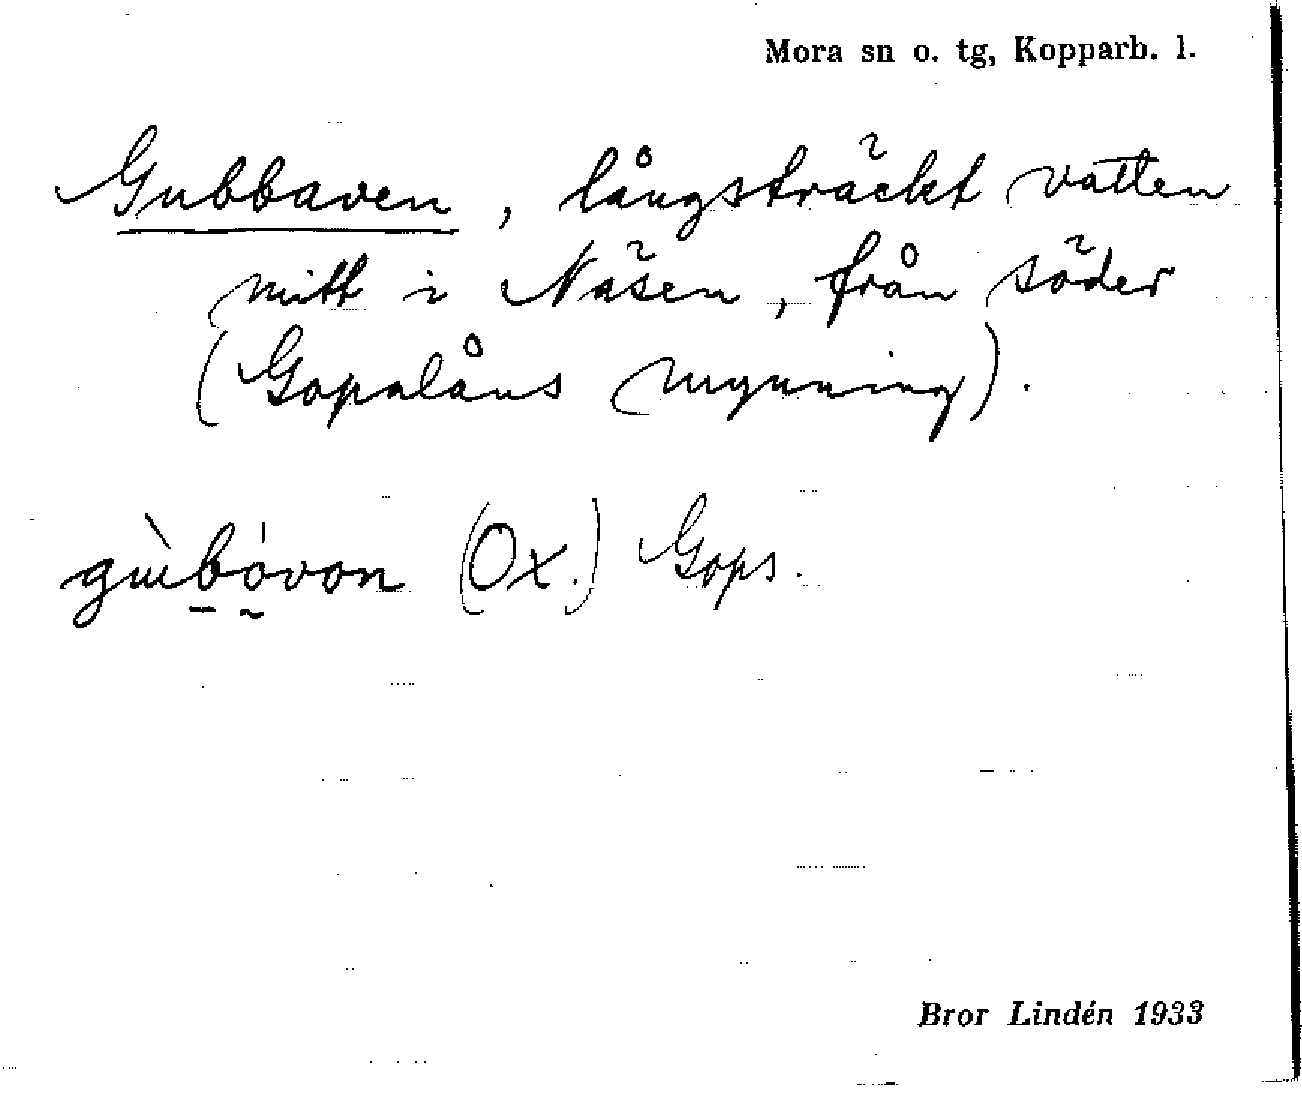 Mora sn o. tg, Kopparb. l.
Gubbaven, långsträckt vatten
mitt i Näsen, från söder
(Gopalåns mynning).
gùbóvon (Ox.) Gops.
Bror Lindén 1933